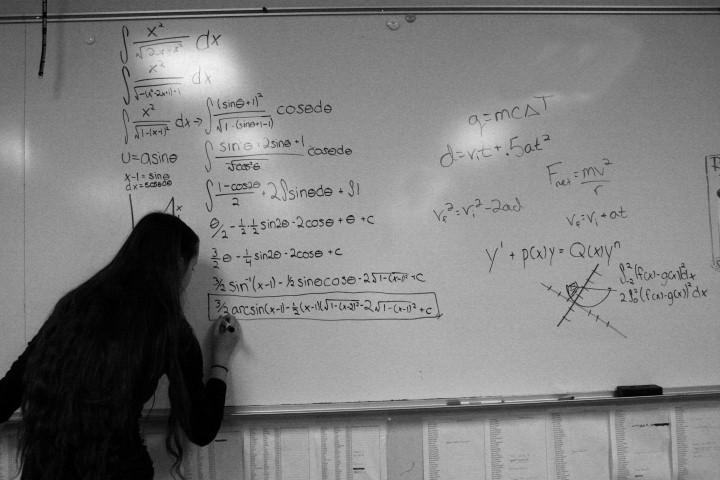 ∫ x²/√(2x-x²) dx
∫ x²/√(-(x²-2x+1)+1) dx
∫ x²/√(1-(x-1)²) dx → ∫ (sinθ+1)²/√(1-(sinθ+1-1) cosθdθ
u = asinθ
x-1 = sinθ
dx = cosθdθ
x
∫ sin²θ + 2sinθ + 1/√cos²θ cosθdθ
∫ 1-cos2θ/2 + 2∫sinθdθ + ∫1
θ/2 - ½·½ sin2θ - 2cosθ + θ + c
3/2 θ - ¼ sin2θ - 2cosθ + c
3/2 sin⁻¹(x-1) - ½ sinθcosθ - 2√1-(x-1)² + c
3/2 arcsin(x-1) - ½(x-1)(√1-(x-1)² - 2√1-(x-1)² + c
q = mcΔT
d = vᵢt + .5at²
Fnet = mv²/r
v_f² = vᵢ² - 2ad
v_f = vᵢ + at
y' + p(x)y = Q(x)yⁿ
∫₋₂² (f(x)-g(x))² dx
2∫₀² (f(x)-g(x))² dx